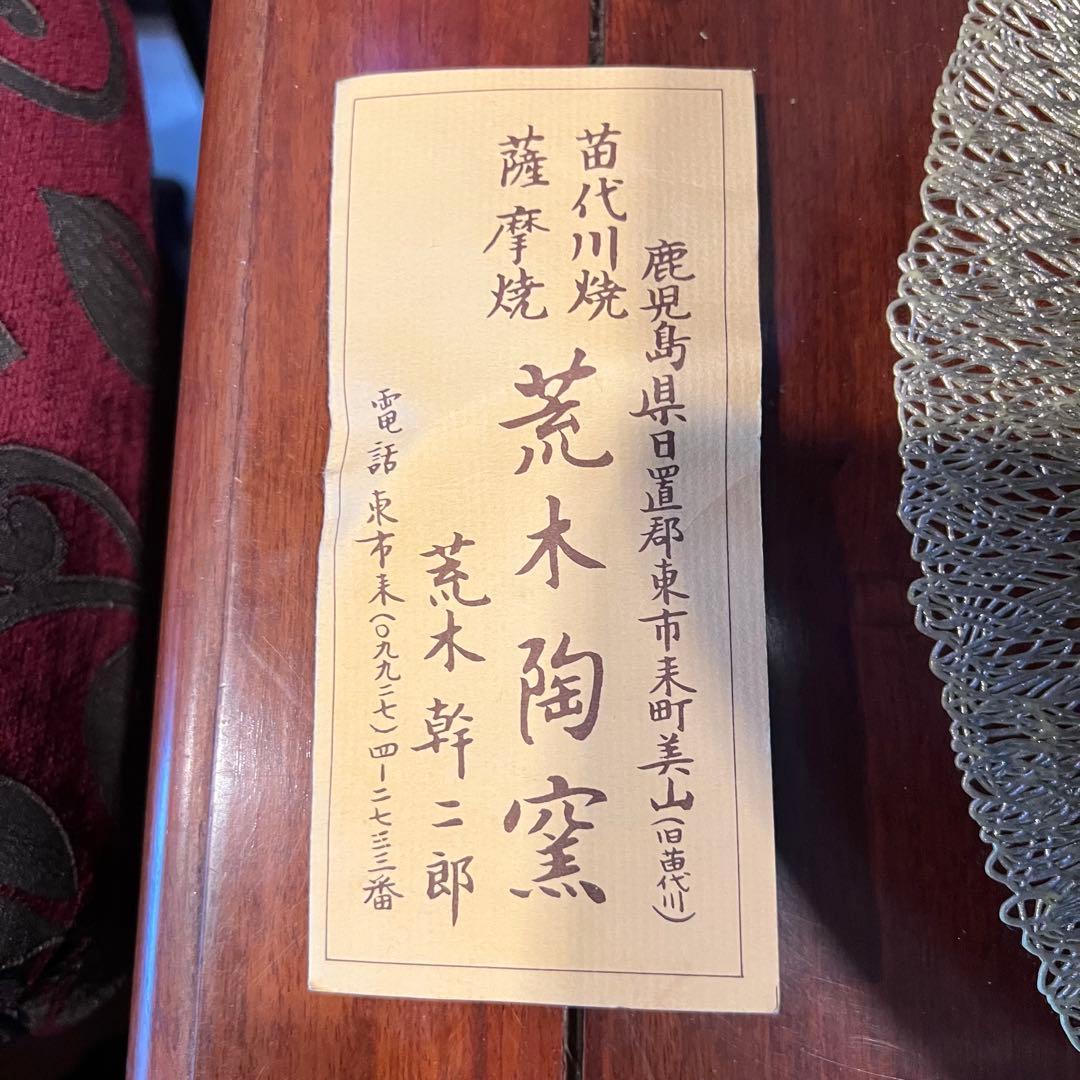 鹿児島県日置郡東市来町美山(旧苗代川)
苗代川焼
薩摩焼
荒木陶窯
荒木幹二郎
電話 東市来(〇九九二七)四ー二七三三番